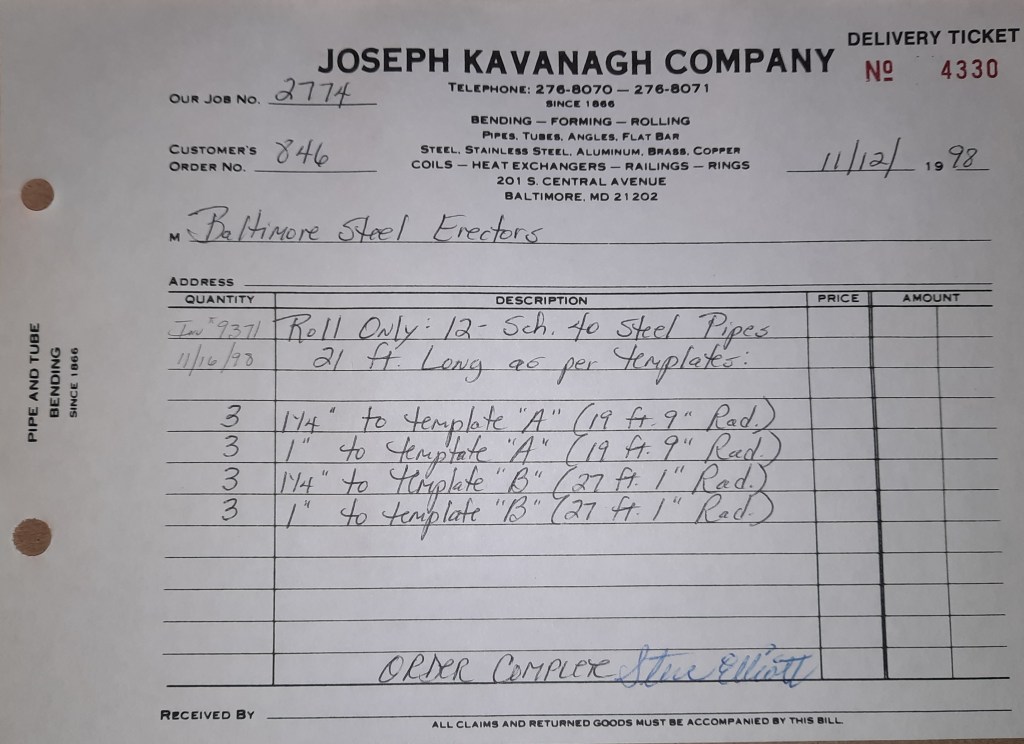 DELIVERY TICKET
JOSEPH KAVANAGH COMPANY
Nº 4330
OUR JOB NO. 2774
TELEPHONE: 276-8070 — 276-8071
SINCE 1866
BENDING — FORMING — ROLLING
PIPES, TUBES, ANGLES, FLAT BAR
CUSTOMER'S ORDER NO. 846
STEEL, STAINLESS STEEL, ALUMINUM, BRASS, COPPER
COILS — HEAT EXCHANGERS — RAILINGS — RINGS
11/12/ 1998
201 S. CENTRAL AVENUE
BALTIMORE, MD 21202
M Baltimore Steel Erectors
ADDRESS
QUANTITY DESCRIPTION PRICE AMOUNT
Inv # 9371 Roll Only: 12- Sch. 40 Steel Pipes
11/16/98 21 ft. Long as per templates:
3 1 1/4" to template "A" (19 ft. 9" Rad.)
3 1" to template "A" (19 ft. 9" Rad.)
3 1 1/4" to template "B" (27 ft. 1" Rad.)
3 1" to template "B" (27 ft. 1" Rad.)
ORDER COMPLETE Steve Elliott
RECEIVED BY
ALL CLAIMS AND RETURNED GOODS MUST BE ACCOMPANIED BY THIS BILL
PIPE AND TUBE
BENDING
SINCE 1866